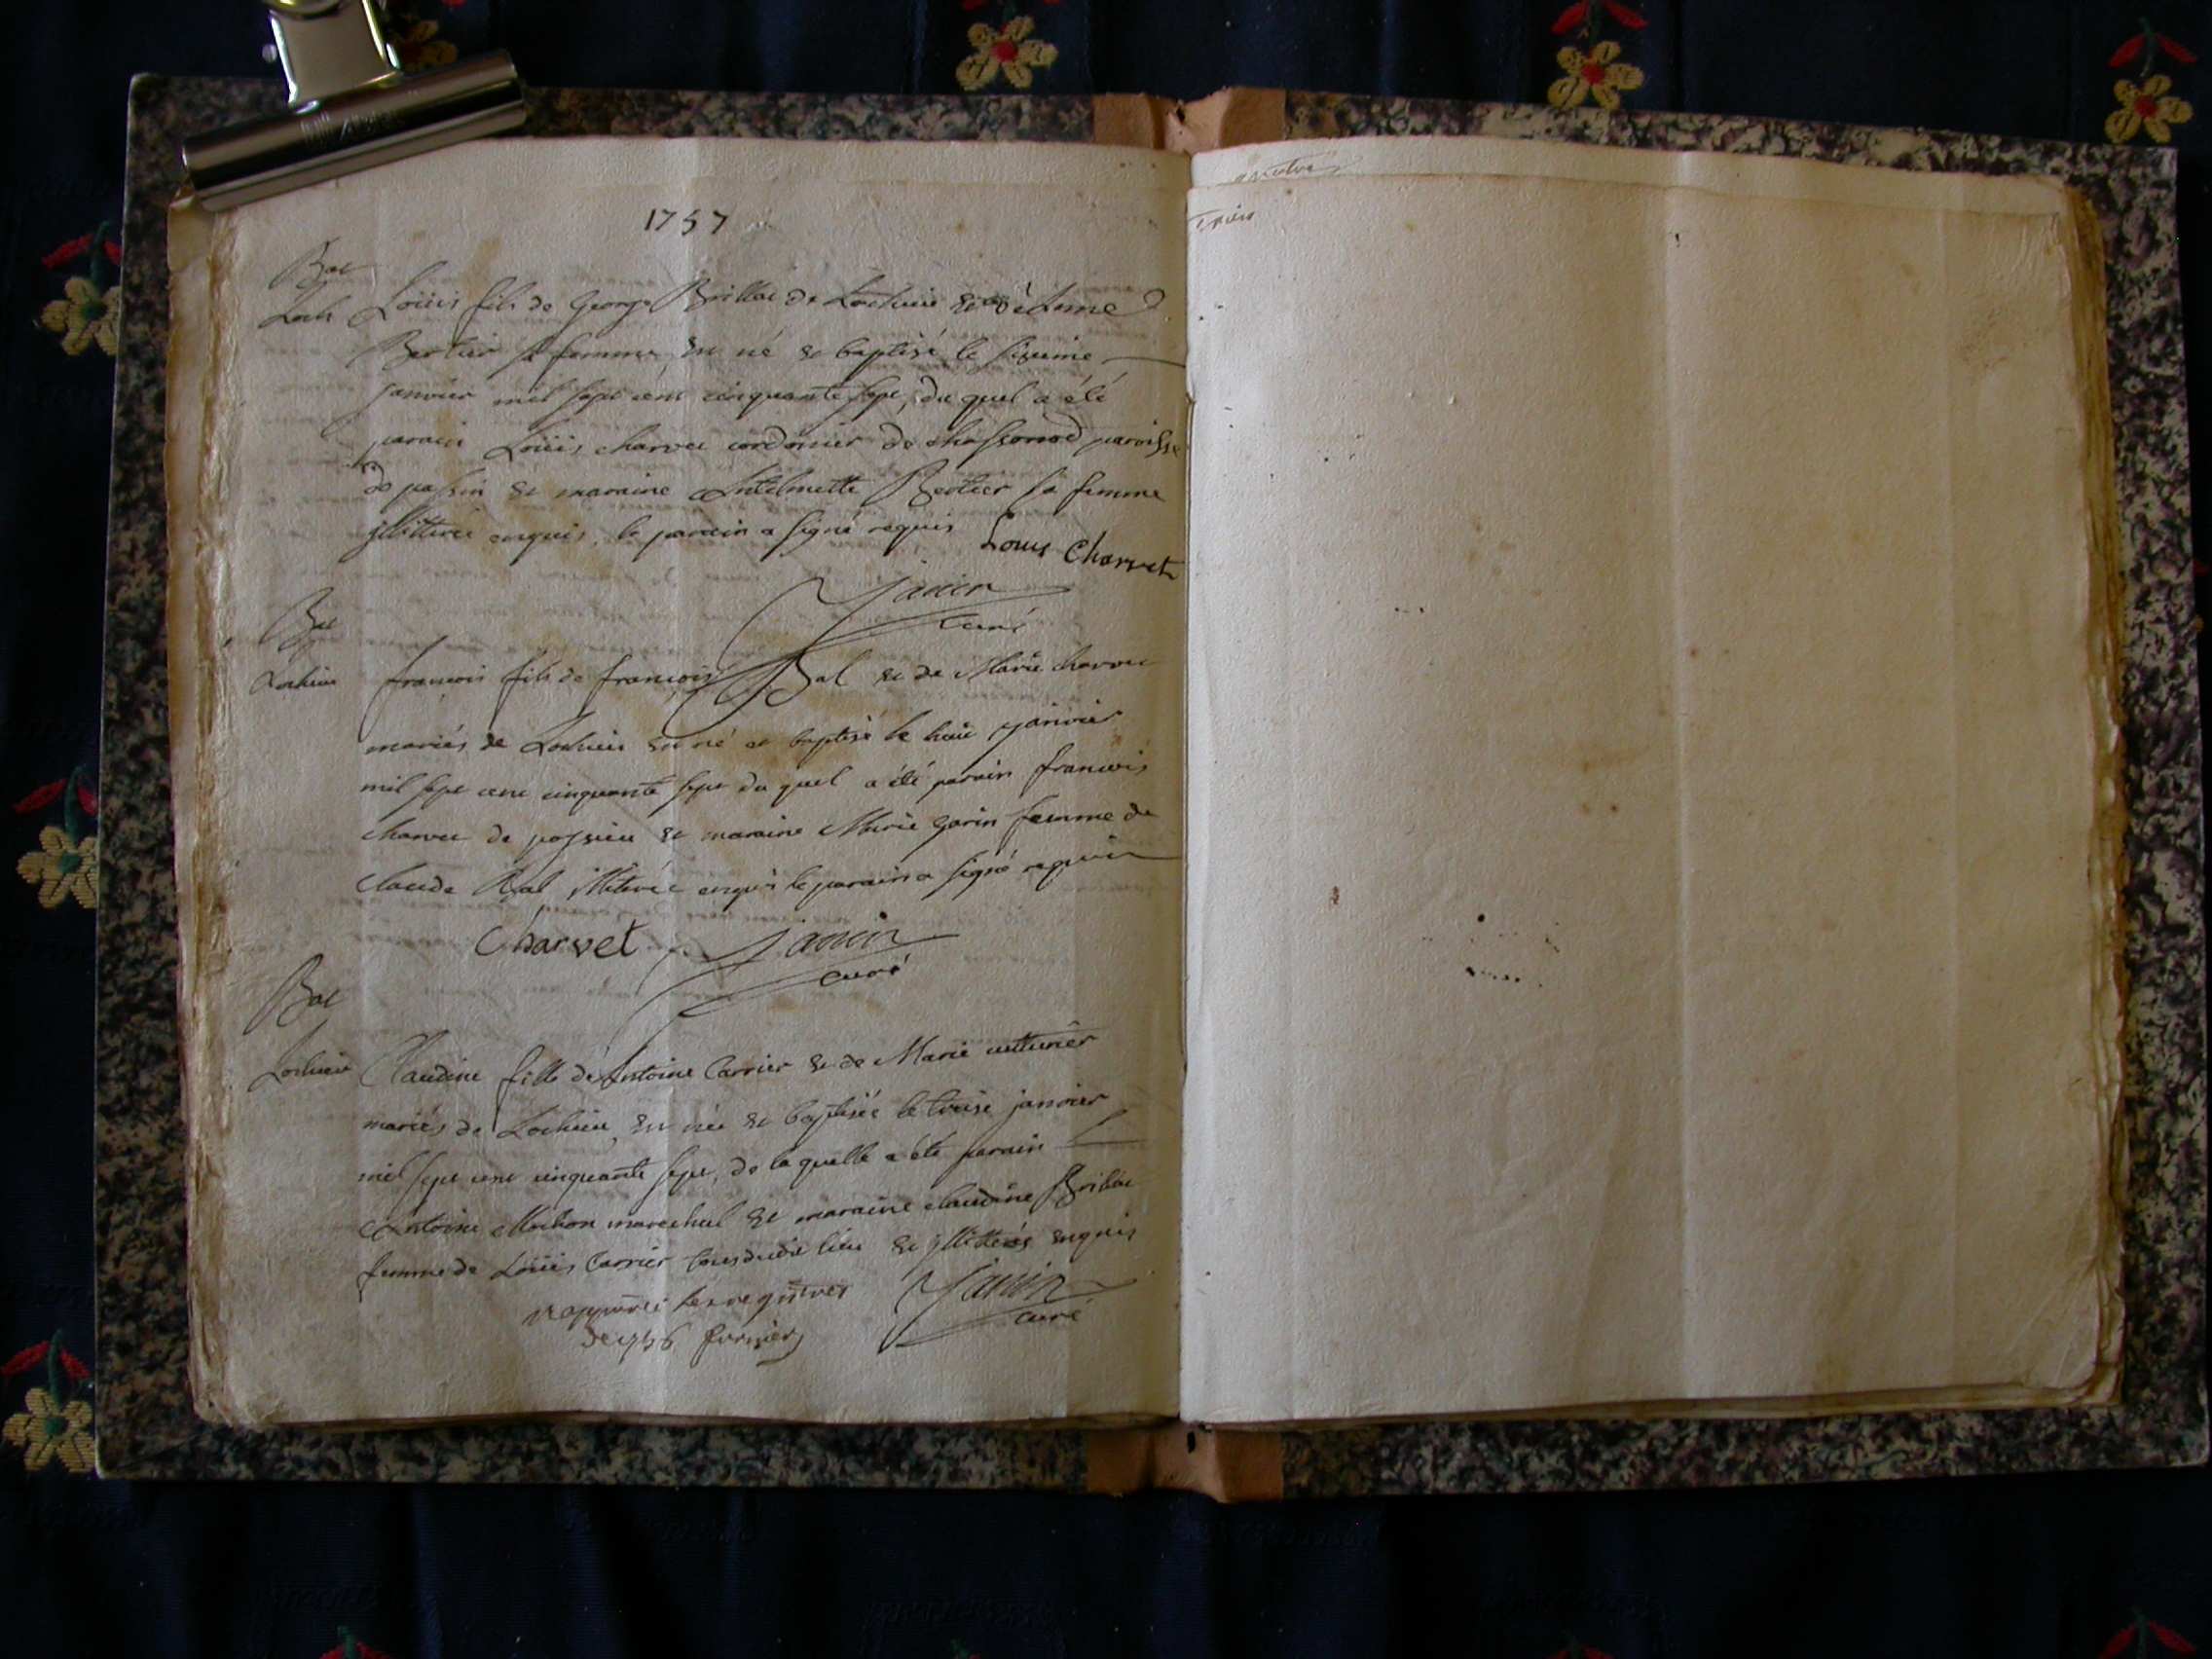 1757
Bat
Loch Loüis fils de George Brillat de Lochieu et d'Anne
Bertier sa femme, est né et baptisé le sixieme
janvier mil sept cent cinquante sept, du quel a été
parain Loüis charvet cordonier de chassonod paroisse
de passin et maraine Antelmette Bertier sa femme
illitterée enquis, le parain a signé requis Louis Charvet
Janin
curé
Bat
Lochieu francois fils de francois Bal et de Marie charvet
mariés de Lochieu est né et baptisé le huit janvier
mil sept cent cinquante sept du quel a été parain francois
charvet de possieu et maraine Marie garin femme de
claude Bal illiterée enquis le parain a signé requis
Charvet Janin
curé
Bat
Lochieu Claudine fille d'Antoine Carrier et de Marie
mariés de Lochieu, est née et baptisée le treise janvier
mil sept cent cinquante sept, de la quelle a été parain
Antoine Mochon marechal et maraine claudine Brillat
femme de Loüis Carrier tous dudit lieu et illitterés enquis
les registres Janin
de 1756 curé